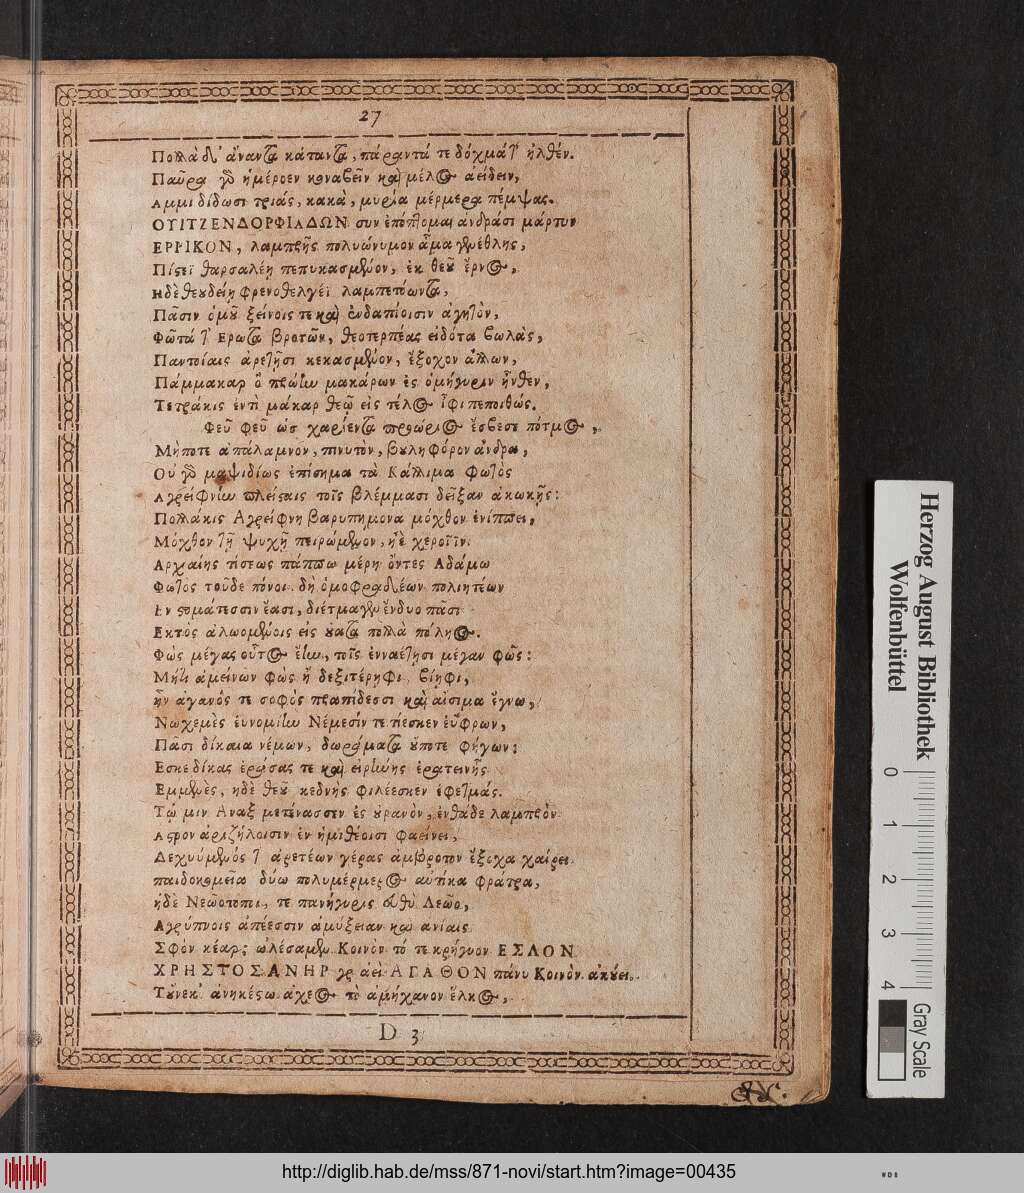 27
Πολλὰ δ' ἄναντα κάταντα, πάραντά τε δόχμά τ' ἠλθέν.
Παῦρα γὸ ἡμέροεν κοναβεῖν καὶ μέλος ἀείδειν,
Αμμι δίδωσι τριάς, κακὰ, μυρία μέρμερα πέμψας.
ΟΥΙΤΖΕΝΔΟΡΦΙΑΔΩΝ συν ἐπόπλομαι ἀνδράσι μάρτυν
ΕΡΡΙΚΟΝ, λαμπρῆς πολυώνυμον αἷμα γενέθλης,
Πίστεϊ θαρσαλέῃ πεπυκασμένον, ἐκ θεοῦ ἔρνος,
Ηδὲ θευδείῃ φρενοθελγέϊ λαμπετόωντα,
Πᾶσιν ὁμοῦ ξείνοις τε καὶ ἐνδαπίοισιν ἀγητὸν,
Φῶτά τ' Ερωτα βροτῶν, θεοτερπέας εἰδότα βωλὰς,
Παντοίαις ἀρετῇσι κεκασμένον, ἔξοχον ἄλλων,
Πάμμακαρ ὃ πρώτων μακάρων ἐς ὁμήγυριν ἦνθεν,
Τετράκις ἐντὶ μάκαρ θεῷ εἰς τέλος ἶφι πεποιθώς.
Φεῦ φεῦ ὡς χαρίεντα πρώριος ἔσβεσε πότμος,
Μήποτε ἀπάλαμνον, πινυτὸν, βουληφόρον ἄνδρα,
Οὐ γὸ μαψιδίως ἐπίσημα τὰ Κάλλιμα φωτὸς
Αγρείφνην πλείσταις τοῖς βλέμμασι δεῖξαν ἀκωκῆς:
Πολλάκις Αγρείφνη βαρυπήμονα μόχθον ἐνίππει,
Μόχθον τῇ ψυχῇ πειρώμενον, ἠὲ χεροῖϊν.
Αρχαίης τίσεως πάππω μέρη ὄντες Αδάμω
Φωτος τοῦδε πόνοι δὴ ὁμοφραδέων πολιητέων
Εν στομάτεσσιν ἔασι, διέτμαγεν ἔνδυο πᾶσι
Εκτὸς ἀλωομένοις εἰς οὔατα πολλὰ πόληος.
Φὼς μέγας οὗτος ἔην, τοῖς ἐνναέτῃσι μέγαν φῶς:
Μήτι ἀμείνων φὼς ἢ δεξιτέρηφι, βίηφι,
ἦν ἀγανός τε σοφὸς πραπίδεσσι καὶ αἴσιμα ἔγνω,
Νωχεμὲς ἐυνομίην Νέμεσίν τε τίεσκεν ἐΰφρων,
Πᾶσι δίκαια νέμων, δωρήματα οὔποτε φήγων:
Εσκε δίκας ἐράσας τε καὶ εἰρήνης ἐρατεινῆς
Εμμενὲς, ἠδὲ θεοῦ κεδνῆς φιλέεσκεν ἐφετμάς.
Τῷ μιν Αναξ μετένασσεν ἐς οὐρανὸν, ἐνθάδε λαμπρὸν
Αστρον ἀριζήλοισιν ἐν ἡμιθέοισι φαείνει,
Δεχνύμενός τ' ἀρετέων γέρας ἄμβροτον ἔξοχα χαίρει.
παιδοκομεῖα δύω πολυμέρμερος αὐτίκα φράτρα,
ἠδὲ Νεώοτοποι, τε πανήγυρις εὐθὺ Λεῶο,
Αγρύπνοις ἀπέεσσιν ἀμύξειαν καὶ ἀνίαις
Σφὸν κέαρ; ὠλέσαμεν Κοινὸν τό τε κρήγυον ΕΣΛΟΝ
ΧΡΗΣΤΟΣ ΑΝΗΡ γρ ἀεὶ ΑΓΑΘΟΝ πάνυ Κοινὸν ἀκούει.
Τούνεκ' ἀνηκέστω ἄχεος τὸ ἀμήχανον ἕλκος,
D 3
Herzog August Bibliothek
Wolfenbüttel
0 1 2 3 4
Gray Scale
http://diglib.hab.de/mss/871-novi/start.htm?image=00435
WDB